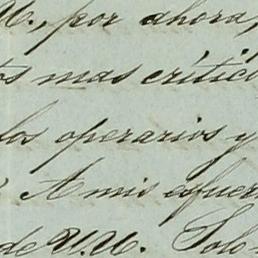 U., por ahora,
os mas crític
los operarios y
A mis esfuer
de V.U. Solo